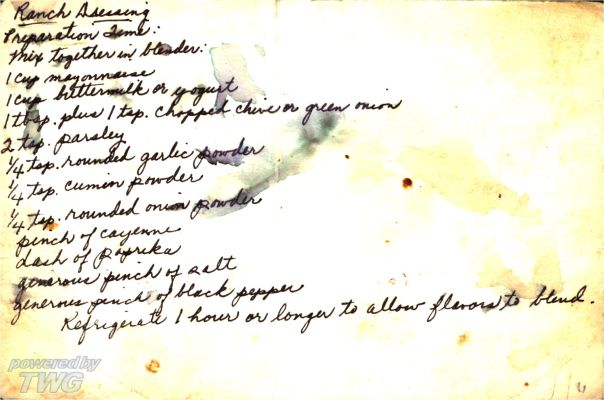 Ranch Dressing
Preparation Time:
Mix together in blender:
1 cup mayonnaise
1 cup buttermilk or yogurt
1 tbsp. plus 1 tsp. chopped chive or green onion
2 tsp. parsley
1/4 tsp. rounded garlic powder
1/4 tsp. cumin powder
1/4 tsp. rounded onion powder
pinch of cayenne
dash of paprika
generous pinch of salt
generous pinch of black pepper
Refrigerate 1 hour or longer to allow flavors to blend.
powered by
TWG